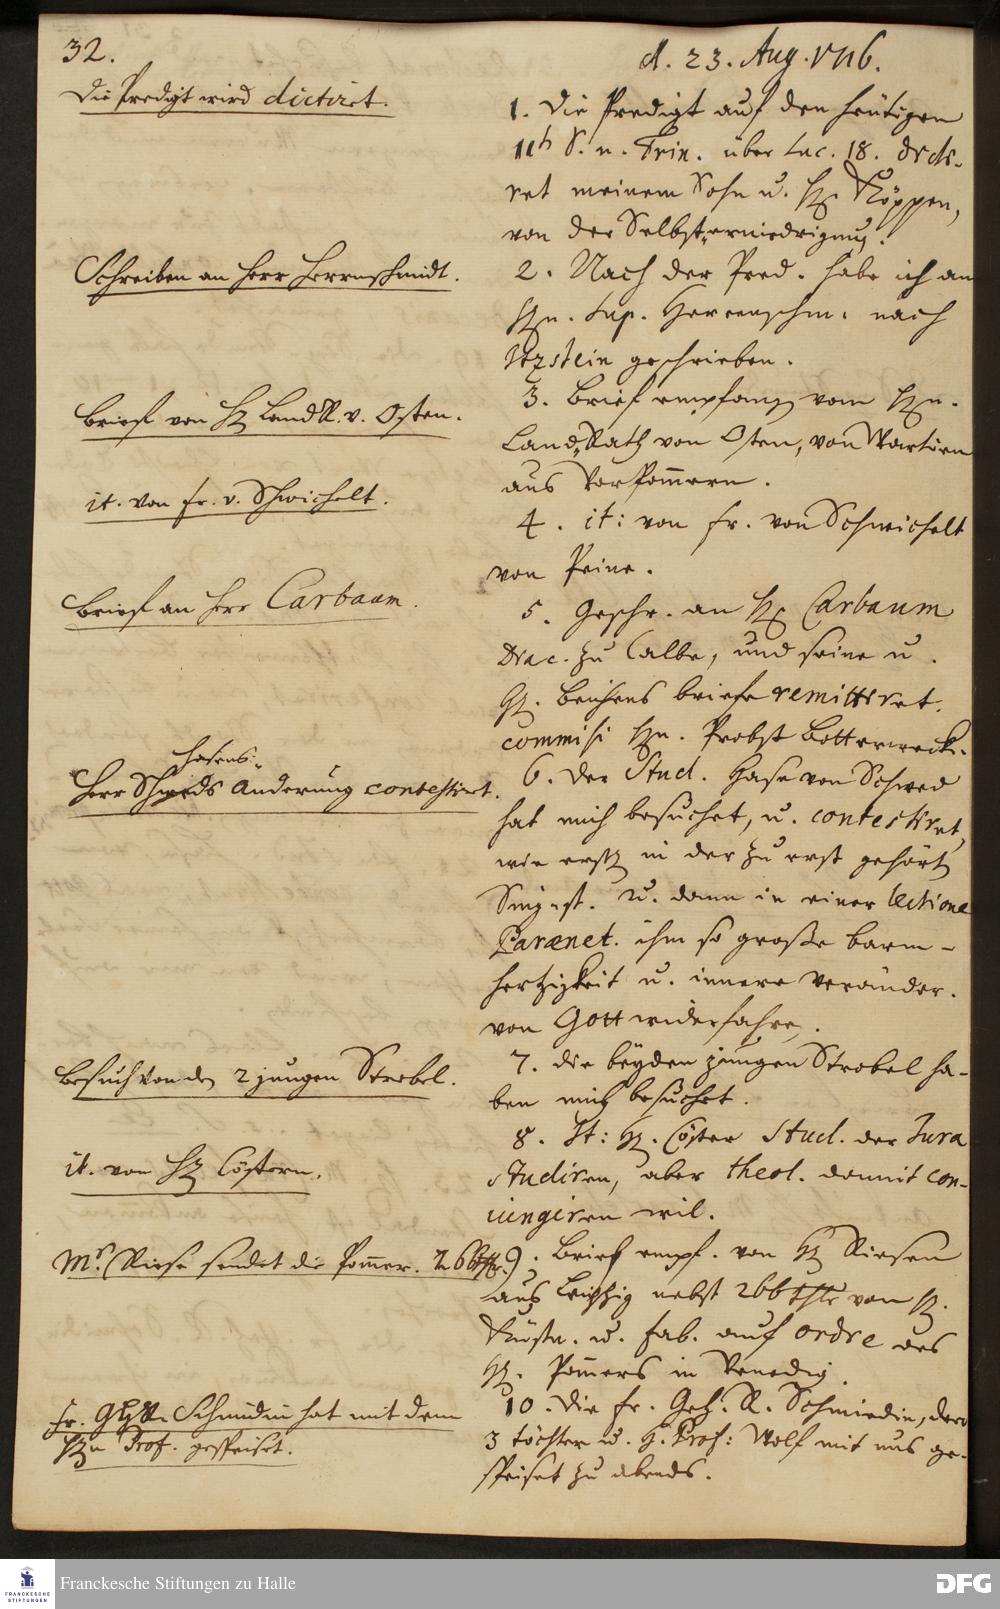 32.
d. 23. Aug. 1716.
Die Predigt wird dictiret.
1. Die Predigt auf den heutigen
11th S. n. Trin. über Luc. 18. dicti-
ret meinem Sohn u. H. Köppen,
von der Selbst-erniedrigung.
Schreiben an Herr Herrnschmidt.
2. Nach der Pred. habe ich an
Hn. Sup. Herrenschm. nach
Itzstein geschrieben.
Brief von H. LandR. v. Osten.
3. Brief empfangen vom Hn.
Land-Rath von Osten, von Wartin
aus VorPommern.
it. von fr. v. Schwichelt.
4. it: von fr. von Schwichelt
von Peine.
Brief an Herr Carbaum.
5. Geschr. an H. Carbaum
Diac. zu Calbe, und seine u.
H. briefe remittiret.
commisi Hn. Probst Botterweck.
hasens
Herr Änderung contestiret.
6. Der Stud. Hase von
hat mich besuchet, u. contestiret,
wie erst in der zu erst gehört
Singest. u. dann in einer lectione
Parænet. ihm so große barm-
hertzigkeit u. innere Veränder.
von Gott widerfahren.
Besuch von den 2 jungen Strobel.
7. die beyden jungen Strobel ha-
ben mich besuchet.
it. von H. Cöstern.
8. It: H. Cöster Stud. der Jura
studiren, aber theol. damit con-
iungiren wil.
Mr. Riese sendet die Pommer. 266 thlr.
9. Brief empf. von H. Riesen
aus Leipzig nebst 266 thlr von H.
Küstn. u. fab. auf ordre des
H. Pommers in Venedig.
Fr. GhR. Schmidin hat mit dem
Hn Prof. gespeiset.
10. Die Fr. Geh. R. Schmiedin, dero
3 töchter u. H. Prof: Wolf mit uns ge-
speiset zu abends.
FRANCKESCHE
STIFTUNGEN
Franckesche Stiftungen zu Halle
DFG